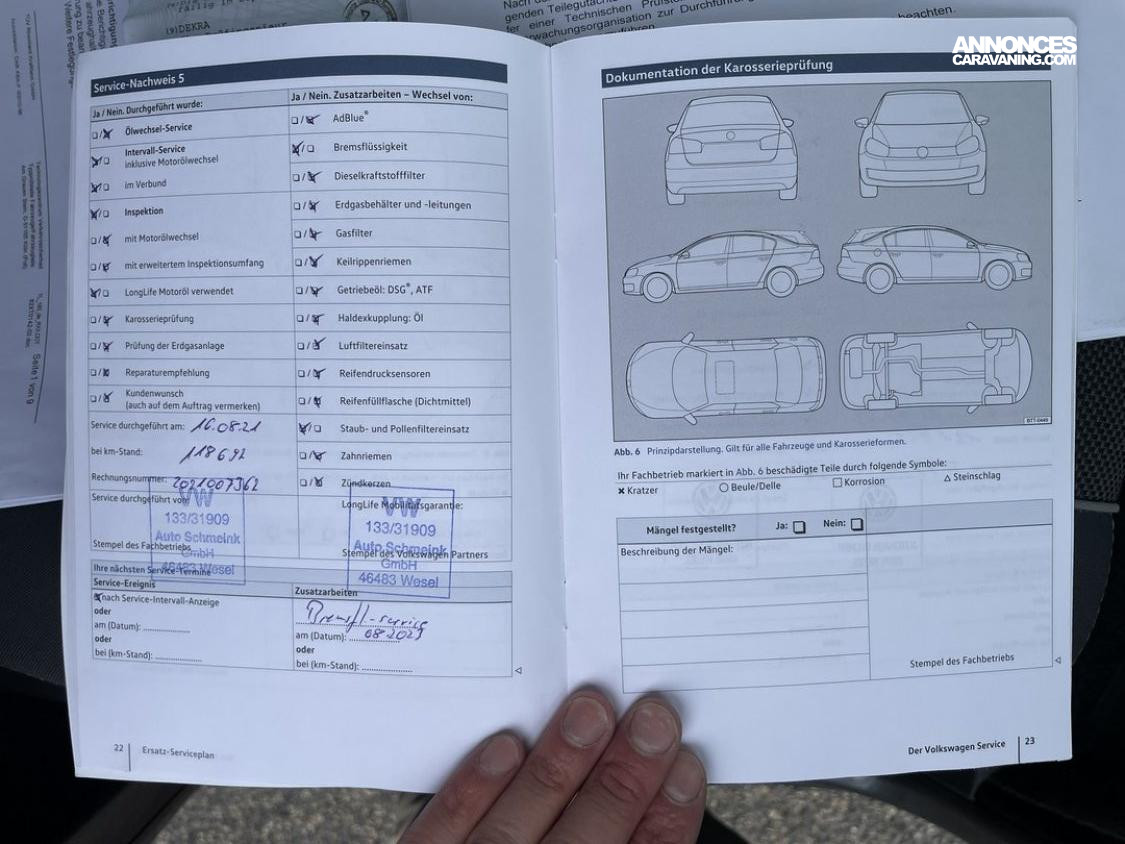 richtigung
(9)DEKRA
genden Teilegutach
er einer Technischen Prüfst
rwachungsorganisation zur Durchführ
beachten.
Seite 1 von 9
ANNONCES
CARAVANING.COM
Service-Nachweis 5
Ja / Nein. Durchgeführt wurde:
Ölwechsel-Service
Intervall-Service
inklusive Motorölwechsel
im Verbund
Inspektion
mit Motorölwechsel
mit erweitertem Inspektionsumfang
LongLife Motoröl verwendet
Karosserieprüfung
Prüfung der Erdgasanlage
Reparaturempfehlung
Kundenwunsch
(auch auf dem Auftrag vermerken)
Service durchgeführt am: 16.08.21
bei km-Stand: 118692
Rechnungsnummer: 2021007362
Service durchgeführt von:
VW
133/31909
Auto Schmeink
GmbH
46483 Wesel
Stempel des Fachbetriebs
Ja / Nein. Zusatzarbeiten – Wechsel von:
AdBlue®
Bremsflüssigkeit
Dieselkraftstofffilter
Erdgasbehälter und -leitungen
Gasfilter
Keilrippenriemen
Getriebeöl: DSG®, ATF
Haldexkupplung: Öl
Luftfiltereinsatz
Reifendrucksensoren
Reifenfüllflasche (Dichtmittel)
Staub- und Pollenfiltereinsatz
Zahnriemen
Zündkerzen
LongLife Mobilitätsgarantie:
VW
133/31909
Auto Schmeink
GmbH
46483 Wesel
Stempel des Volkswagen Partners
Ihre nächsten Service-Termine
Service-Ereignis
nach Service-Intervall-Anzeige
oder
am (Datum):
oder
bei (km-Stand):
Zusatzarbeiten
Bremsfl-service
am (Datum): 08 2023
oder
bei (km-Stand):
22 Ersatz-Serviceplan
Dokumentation der Karosserieprüfung
Abb. 6 Prinzipdarstellung. Gilt für alle Fahrzeuge und Karosserieformen.
Ihr Fachbetrieb markiert in Abb. 6 beschädigte Teile durch folgende Symbole:
Kratzer Beule/Delle Korrosion Steinschlag
Mängel festgestellt? Ja: Nein:
Beschreibung der Mängel:
Stempel des Fachbetriebs
Der Volkswagen Service 23